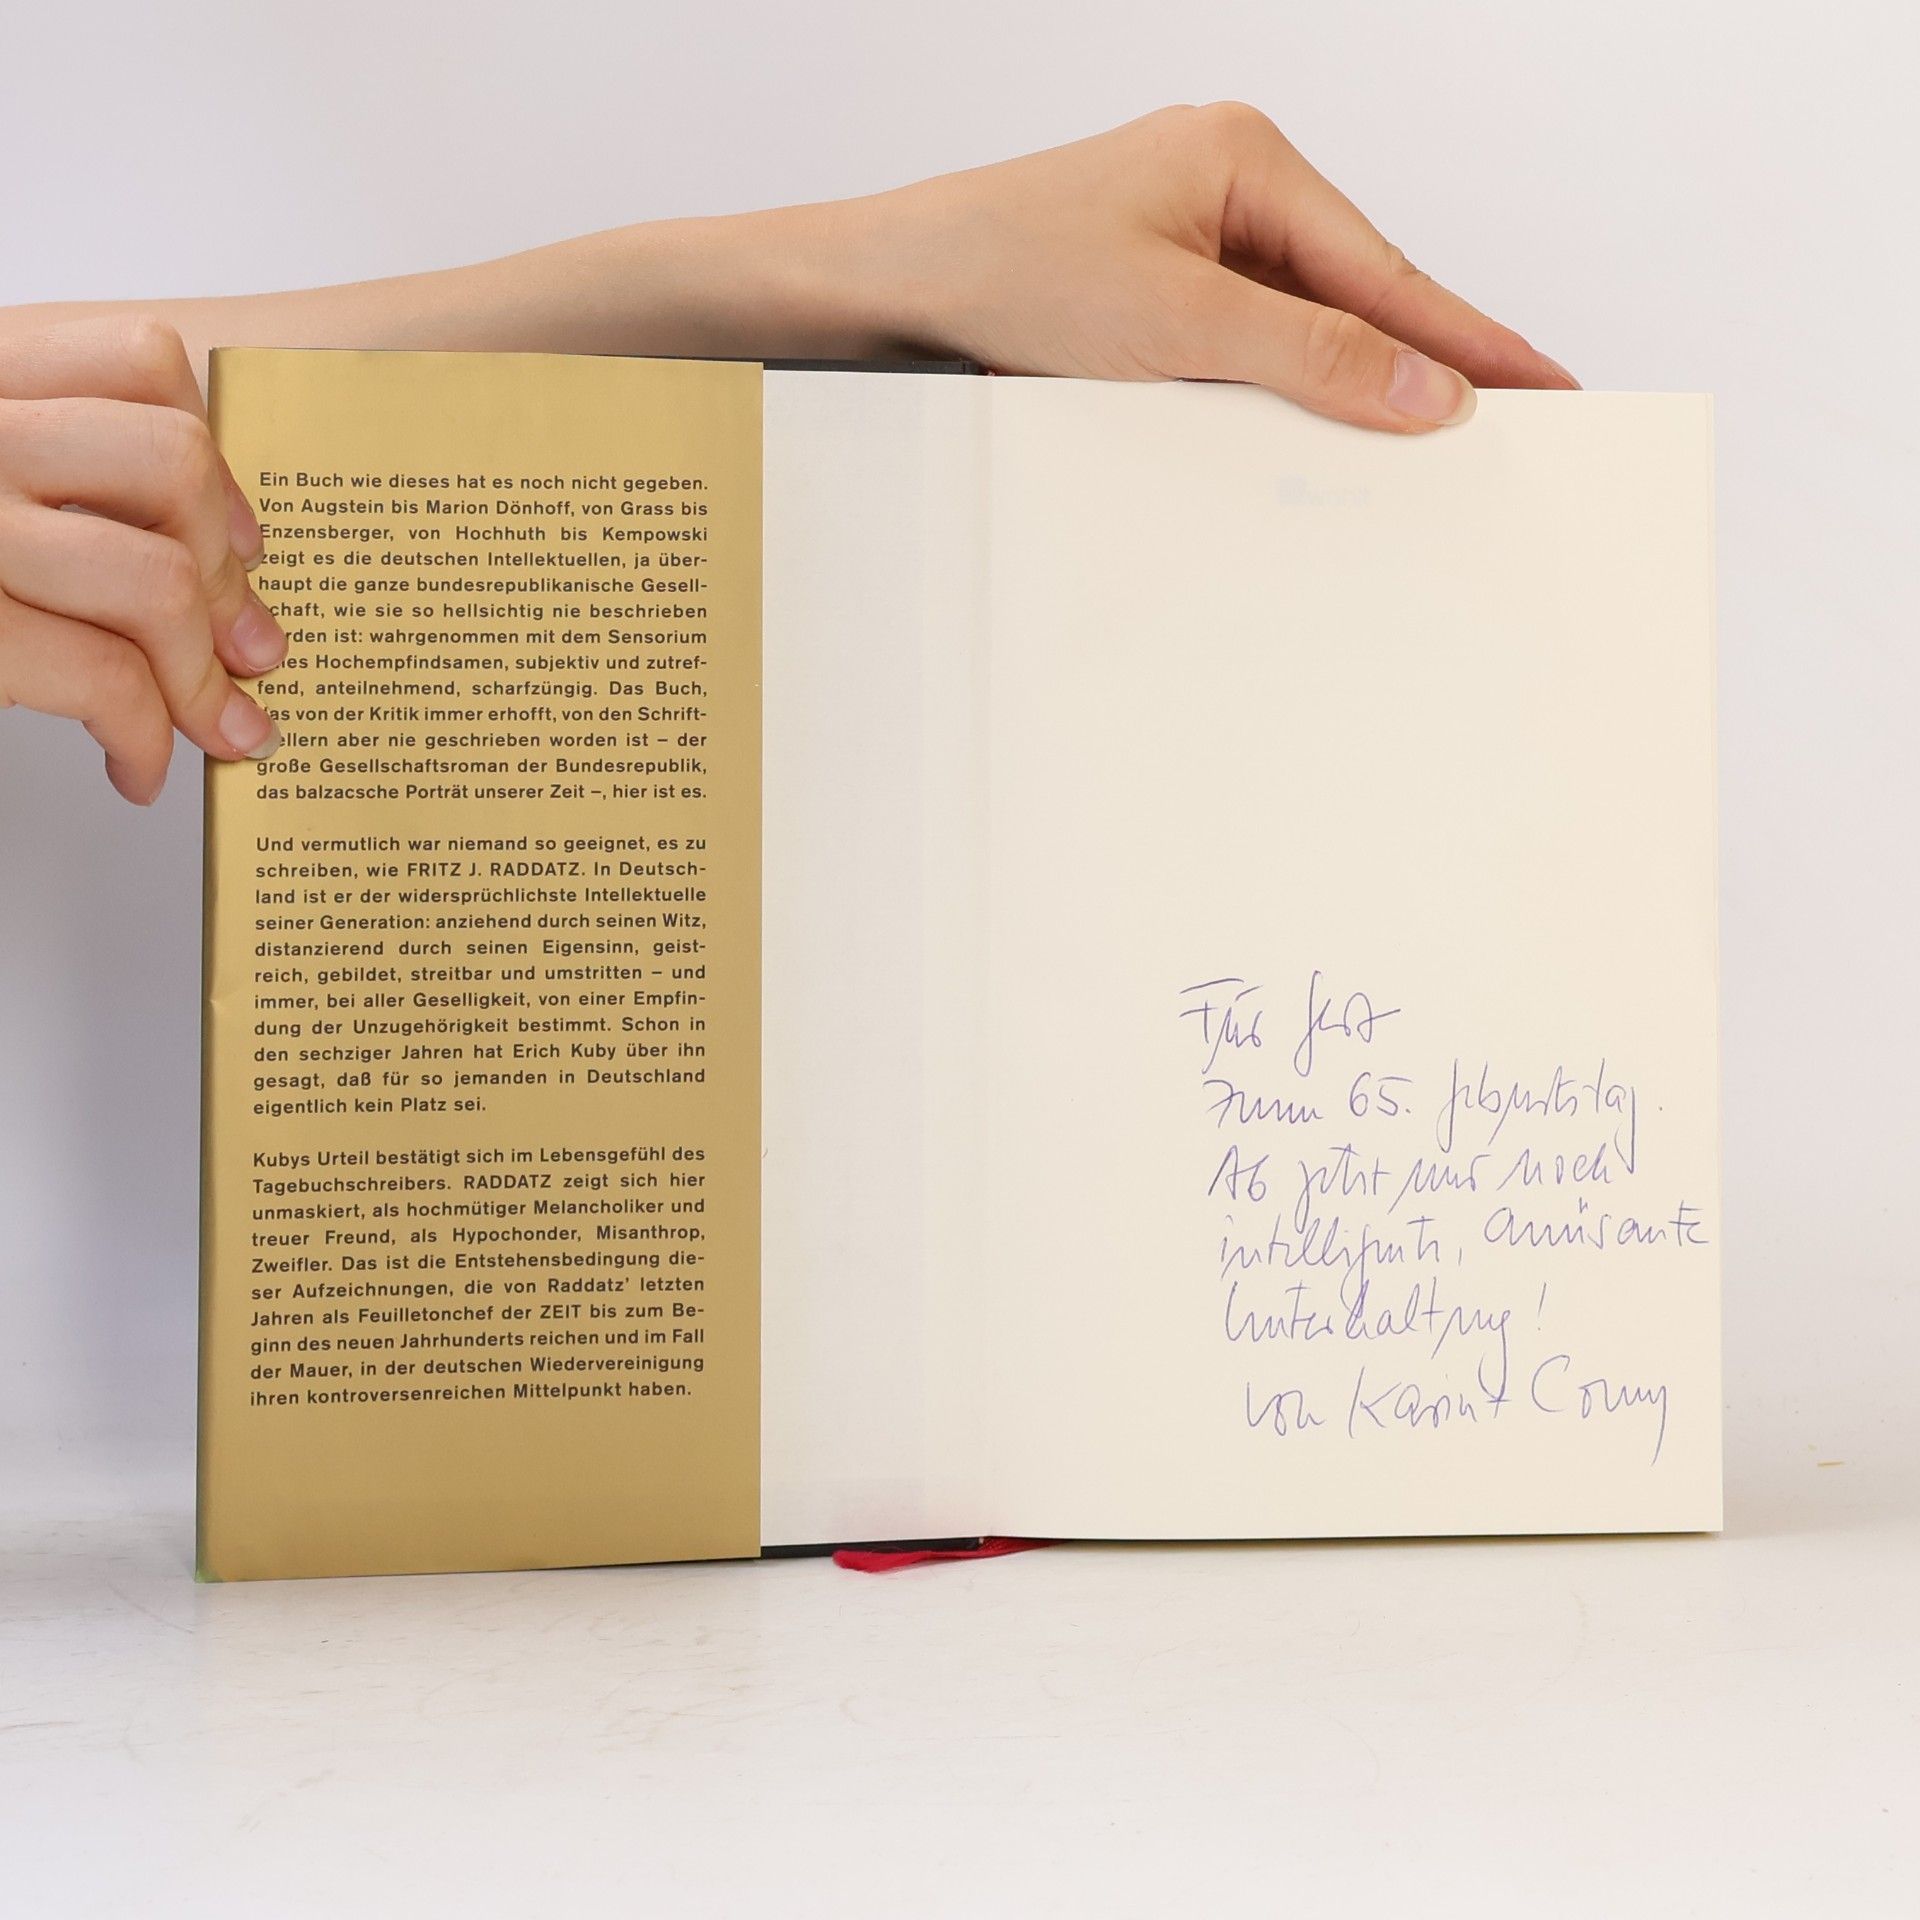 Ein Buch wie dieses hat es noch nicht gegeben.
Von Augstein bis Marion Dönhoff, von Grass bis
Enzensberger, von Hochhuth bis Kempowski
zeigt es die deutschen Intellektuellen, ja über-
haupt die ganze bundesrepublikanische Gesell-
schaft, wie sie so hellsichtig nie beschrieben
rden ist: wahrgenommen mit dem Sensorium
nes Hochempfindsamen, subjektiv und zutref-
fend, anteilnehmend, scharfzüngig. Das Buch,
das von der Kritik immer erhofft, von den Schrift-
ellern aber nie geschrieben worden ist – der
große Gesellschaftsroman der Bundesrepublik,
das balzacsche Porträt unserer Zeit –, hier ist es.
Und vermutlich war niemand so geeignet, es zu
schreiben, wie FRITZ J. RADDATZ. In Deutsch-
land ist er der widersprüchlichste Intellektuelle
seiner Generation: anziehend durch seinen Witz,
distanzierend durch seinen Eigensinn, geist-
reich, gebildet, streitbar und umstritten – und
immer, bei aller Geselligkeit, von einer Empfin-
dung der Unzugehörigkeit bestimmt. Schon in
den sechziger Jahren hat Erich Kuby über ihn
gesagt, daß für so jemanden in Deutschland
eigentlich kein Platz sei.
Kubys Urteil bestätigt sich im Lebensgefühl des
Tagebuchschreibers. RADDATZ zeigt sich hier
unmaskiert, als hochmütiger Melancholiker und
treuer Freund, als Hypochonder, Misanthrop,
Zweifler. Das ist die Entstehensbedingung die-
ser Aufzeichnungen, die von Raddatz’ letzten
Jahren als Feuilletonchef der ZEIT bis zum Be-
ginn des neuen Jahrhunderts reichen und im Fall
der Mauer, in der deutschen Wiedervereinigung
ihren kontroversenreichen Mittelpunkt haben.
Für
zum 65. Geburtstag.
Ab jetzt nur noch
intelligente, amüsante
Unterhaltung!
von Karin + Conny